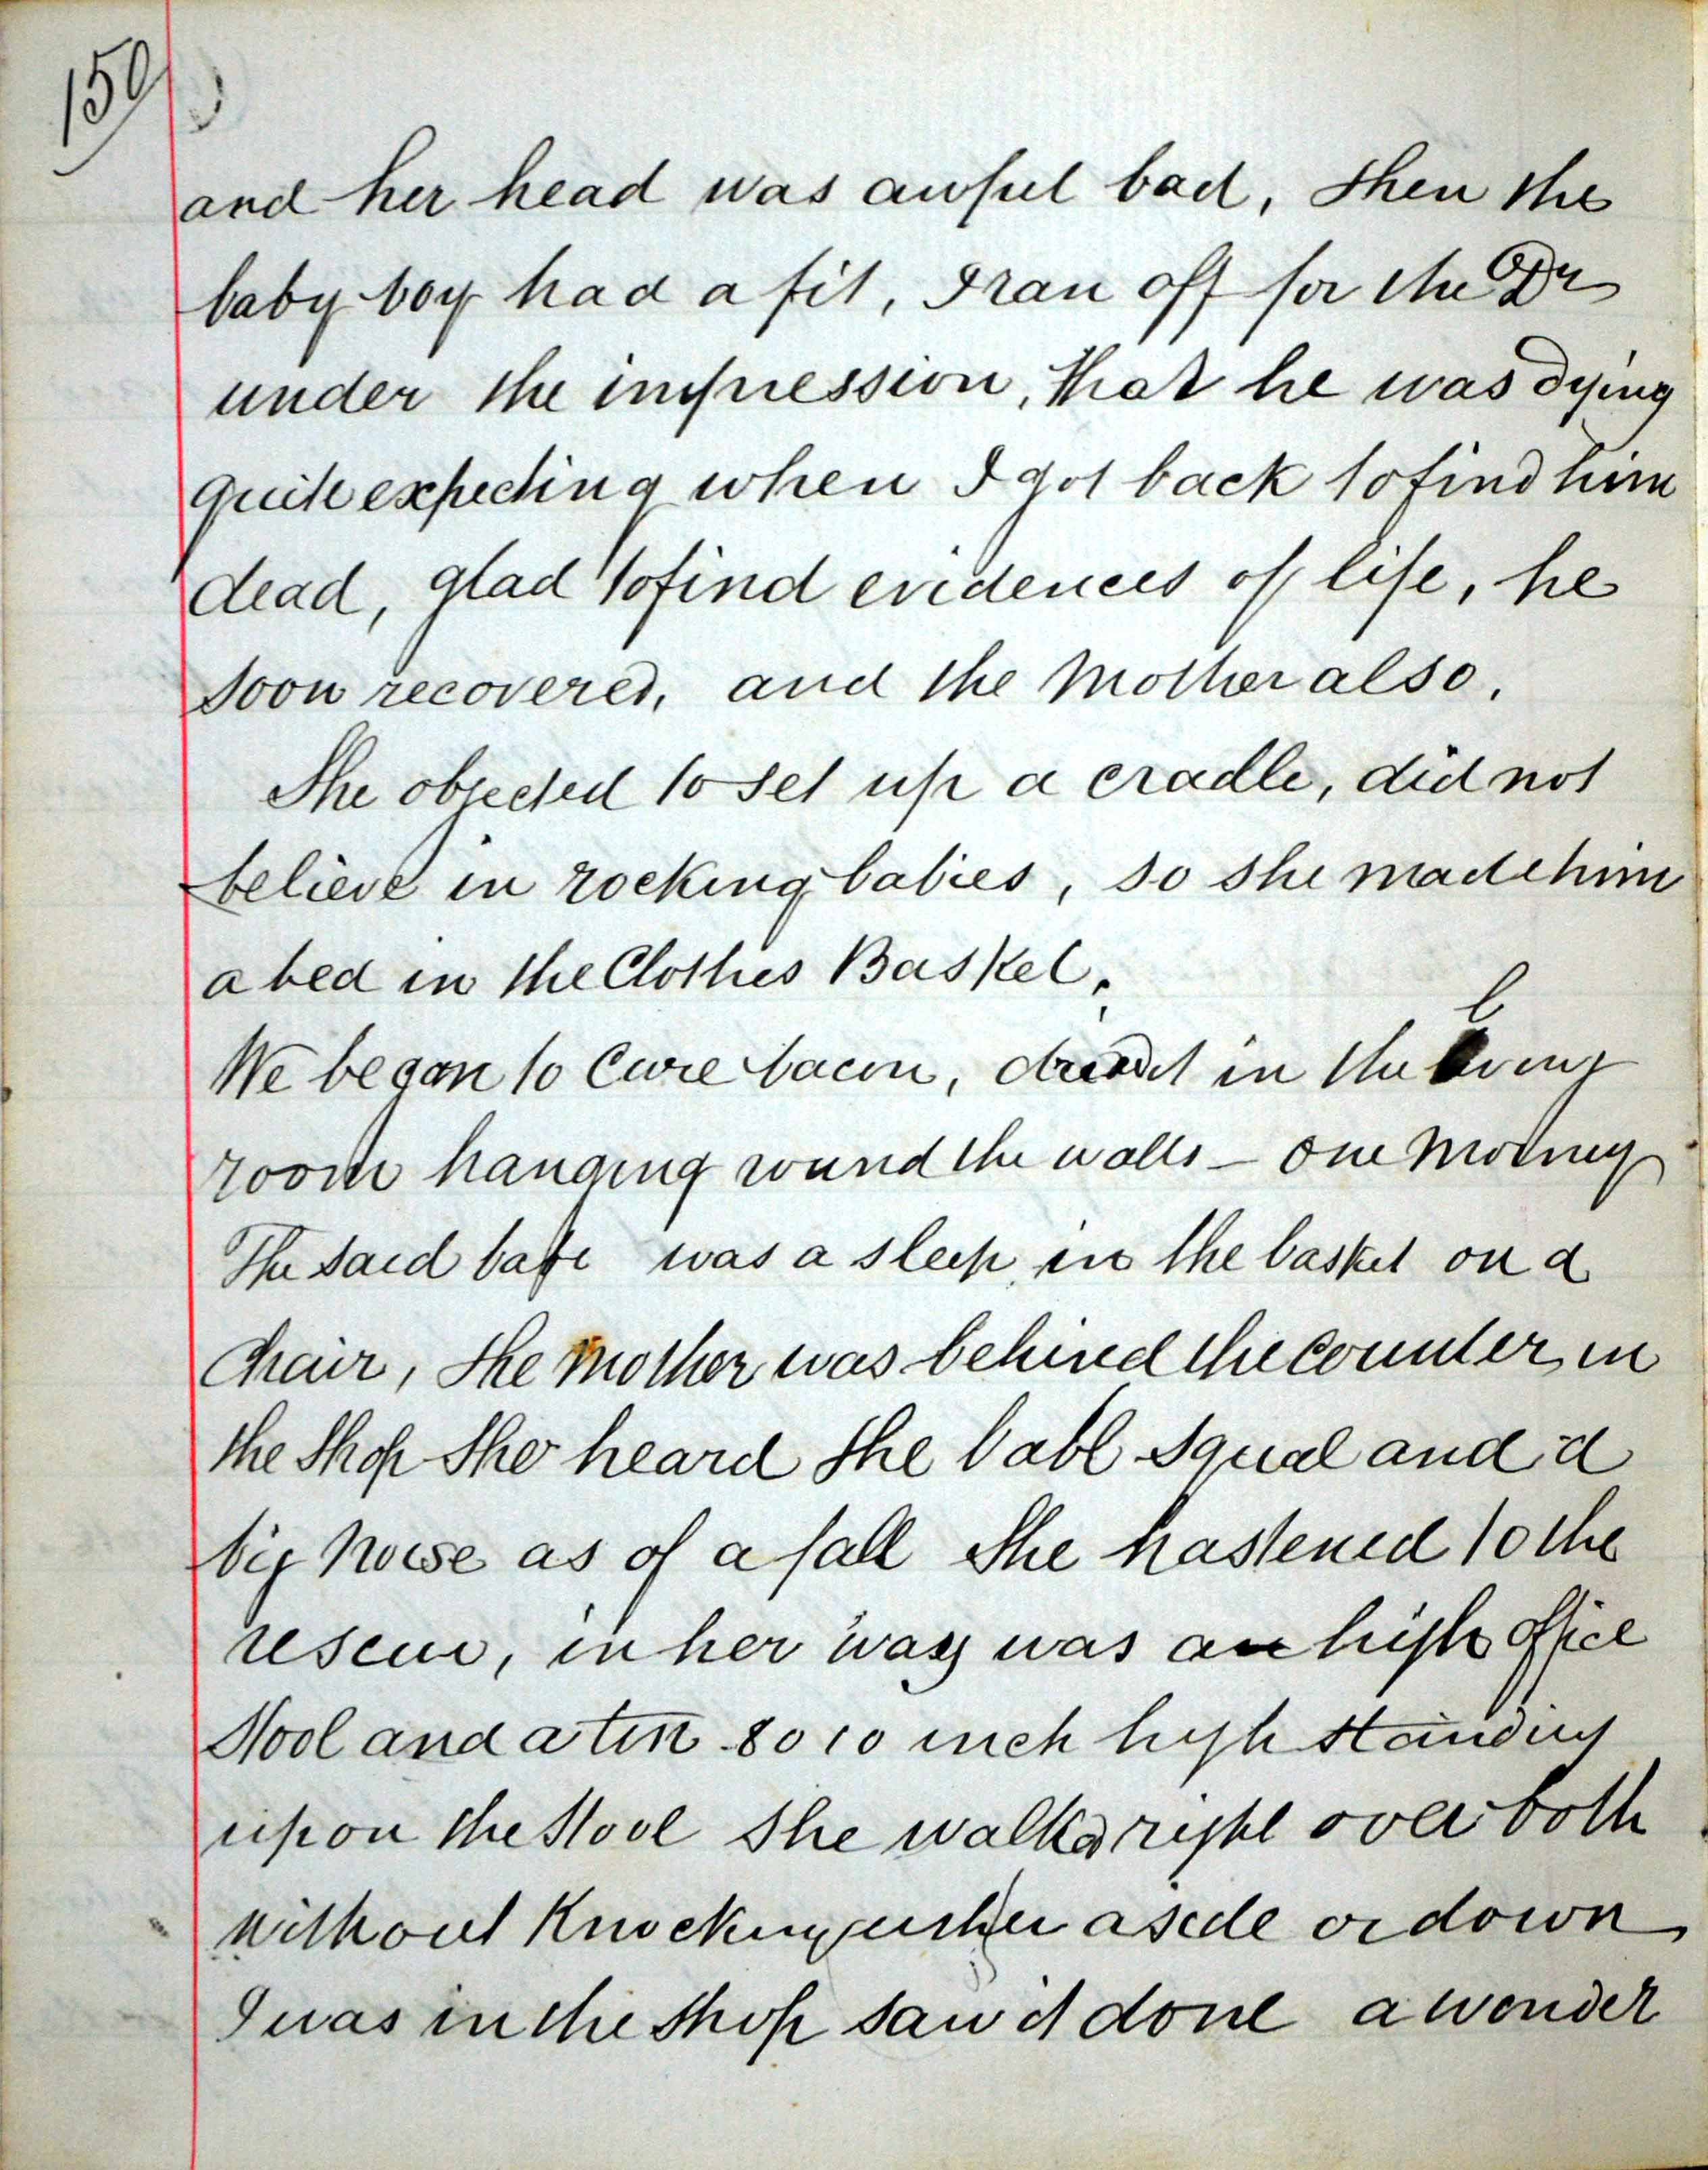 150
and her head was awful bad, then the
baby boy had a fit, I ran off for the Dr
under the impression, that he was dying
quite expecting when I got back to find him
dead, glad to find evidences of life, he
soon recovered, and the Mother also,
She objected to set up a cradle, did not
believe in rocking babies, so she made him
a bed in the Clothes Basket.
We began to Cure bacon, in the living
room hanging round the walls – one Morning
The said babe was a sleep in the basket on a
Chair, the Mother was behind the counter in
the Shop She heard the babe squal and a
big Noise as of a fall She hastened to the
rescue, in her way was an high office
Stool and a tin 8 o 10 inch high standing
upon the Stool She walkd right over both
without Knocking either aside or down
I was in the Shop saw it done a wonder